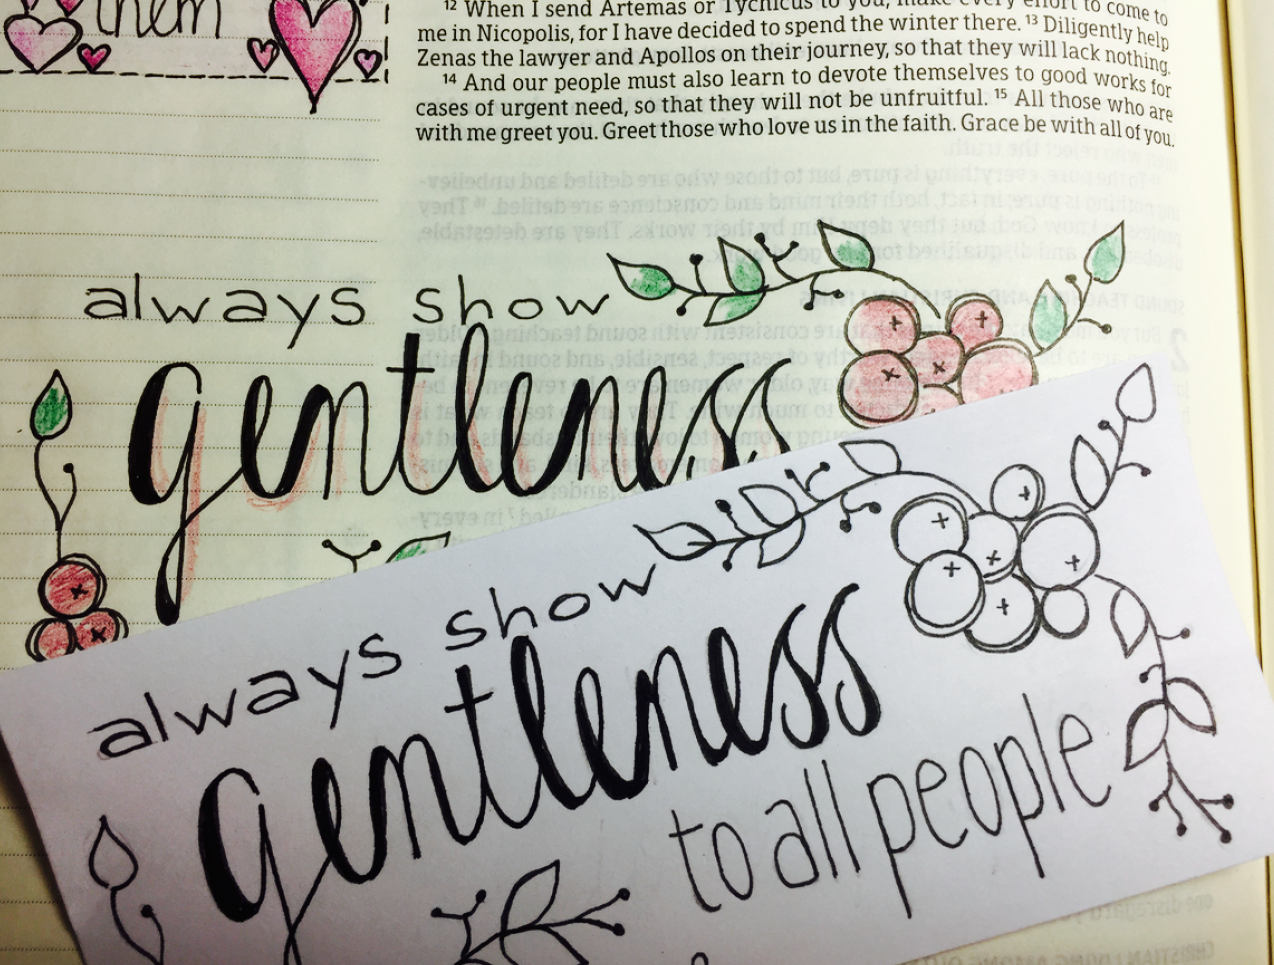 them
12 When I send Artemas or Tychicus to you, make every effort to come to
me in Nicopolis, for I have decided to spend the winter there. 13 Diligently help
Zenas the lawyer and Apollos on their journey, so that they will lack nothing.
14 And our people must also learn to devote themselves to good works for
cases of urgent need, so that they will not be unfruitful. 15 All those who are
with me greet you. Greet those who love us in the faith. Grace be with all of you.
always show
gentleness
always show
gentleness
to all people